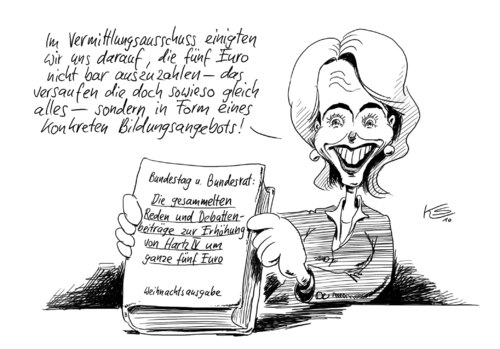 Im Vermittlungsausschuss einigten
wir uns darauf, die fünf Euro
nicht bar auszuzahlen – das
versaufen die doch sowieso gleich
alles – sondern in Form eines
konkreten Bildungsangebots!
Bundestag u. Bundesrat:
Die gesammelten
Reden und Debatten-
beiträge zur Erhöhung
von Hartz IV um
ganze fünf Euro
Weihnachtsausgabe